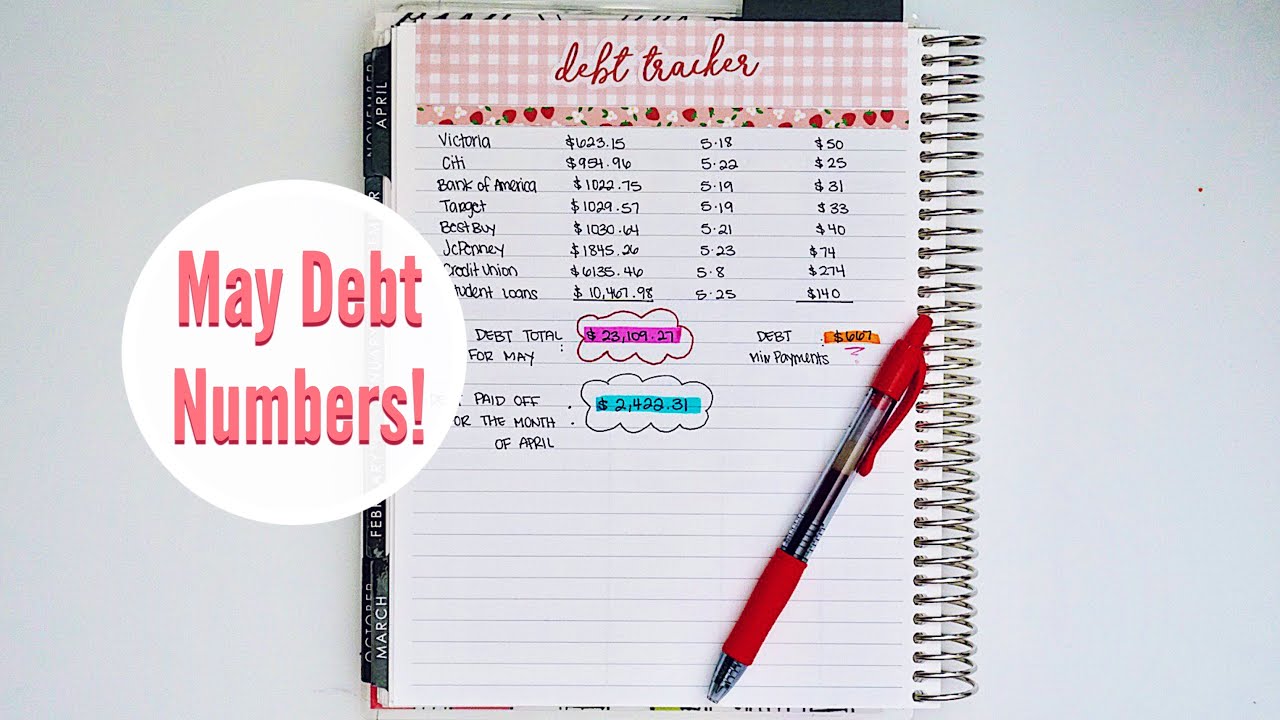 debt tracker
Victoria $623.15 5.18 $50
Citi $954.96 5.22 $25
Bank of America $1022.75 5.19 $31
Target $1029.57 5.19 $33
Best Buy $1030.64 5.21 $40
JcPenney $1845.26 5.23 $74
Credit Union $6135.46 5.8 $274
Student Loans $10,467.98 5.25 $140
DEBT TOTAL $23,109.27 DEBT : $667
FOR MAY : Min Payments
PAID OFF : $2,422.31
OR THE MONTH
OF APRIL
May Debt
Numbers!
NOVEMBER
APRIL
OCTOBER
MARCH